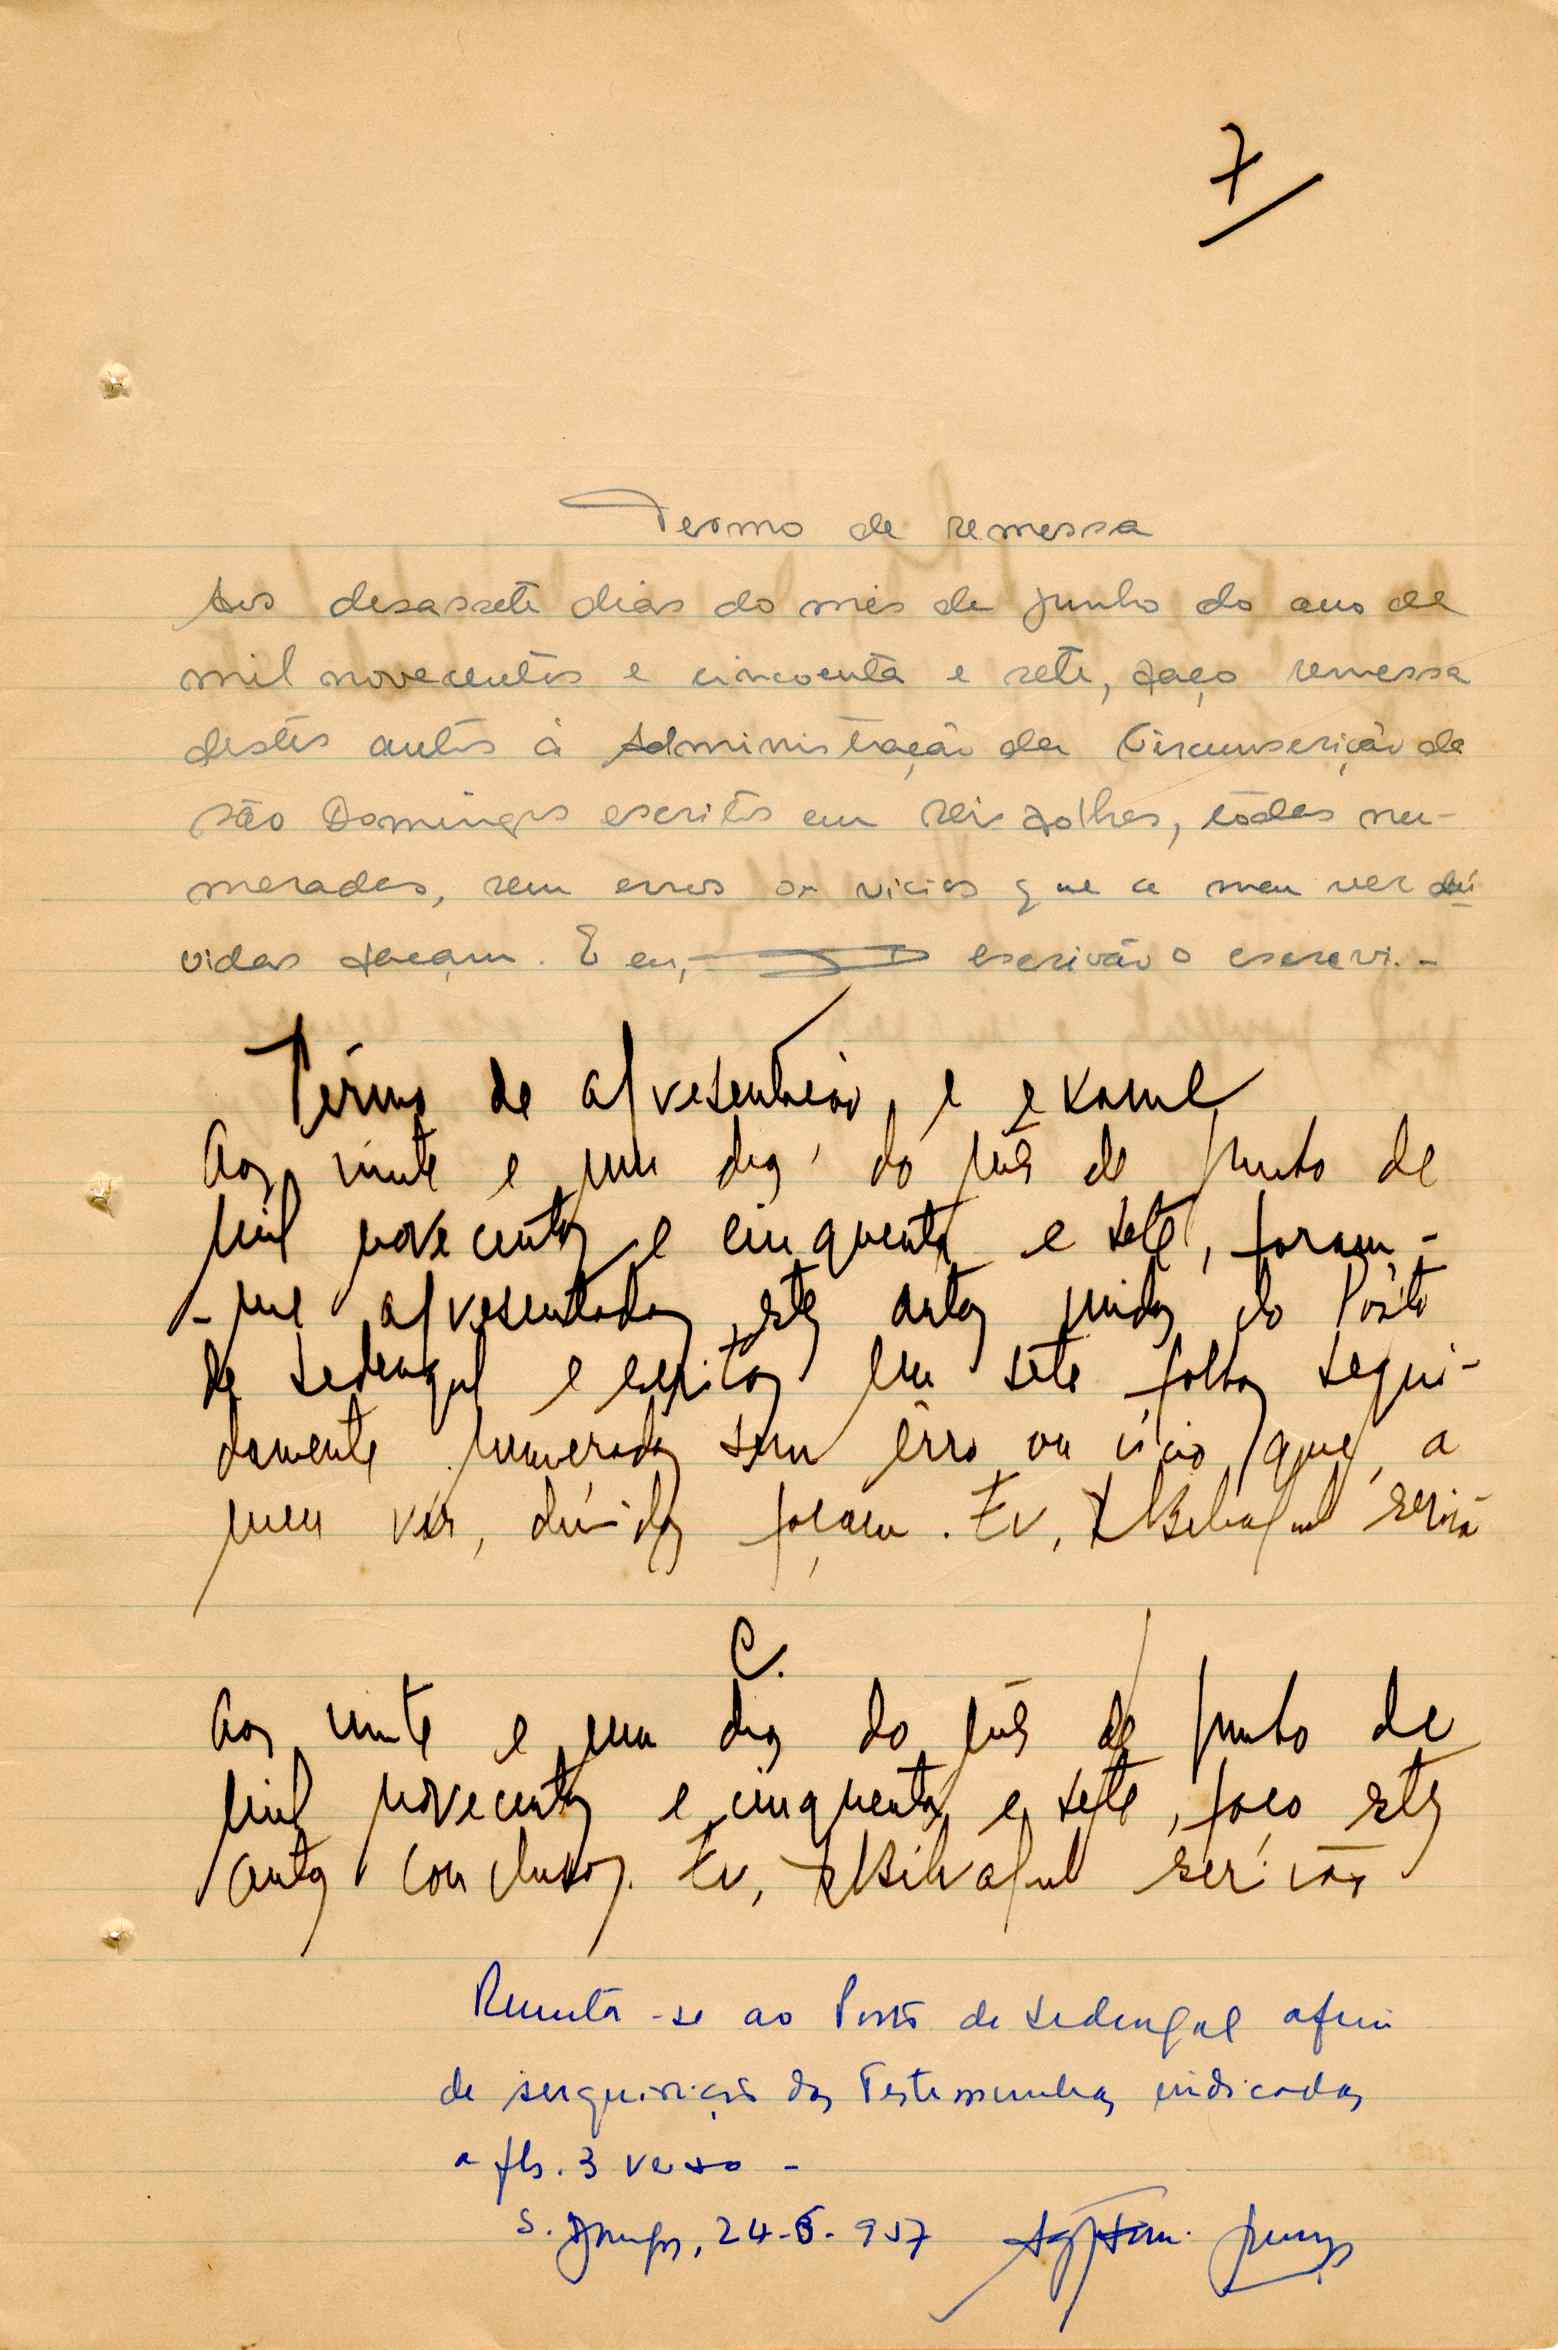 7
Termo de remessa
Aos desassete dias do mês de Junho do ano de
mil novecentos e cincoenta e sete, faço remessa
destes autos à Administração da Circunscrição de
São Domingos escritos em seis folhas, tôdas nu-
meradas, sem erros ou vicios que a meu ver dú
vidas façam. E eu, escrivão o escrevi.-
Têrmo de apresentação e exame
Aos vinte e um dias do mês de Junho de
mil novecentos e cinquenta e sete, foram-
-me apresentados estes autos vindos do Pôsto
de Sedengal e escritos em sete folhas segui-
damente numeradas sem êrro ou vício que, a
meu vêr, dúvidas façam. Eu, escrivão
C.
Aos vinte e um dias do mês de Junho de
mil novecentos e cinquenta e sete, faço estes
autos conclusos. Eu, escrivão
Remeta-se ao Posto de Sedengal afim
de inquirição das Testemunhas indicadas
a fls. 3 verso -
S. Domingos, 24-6-957